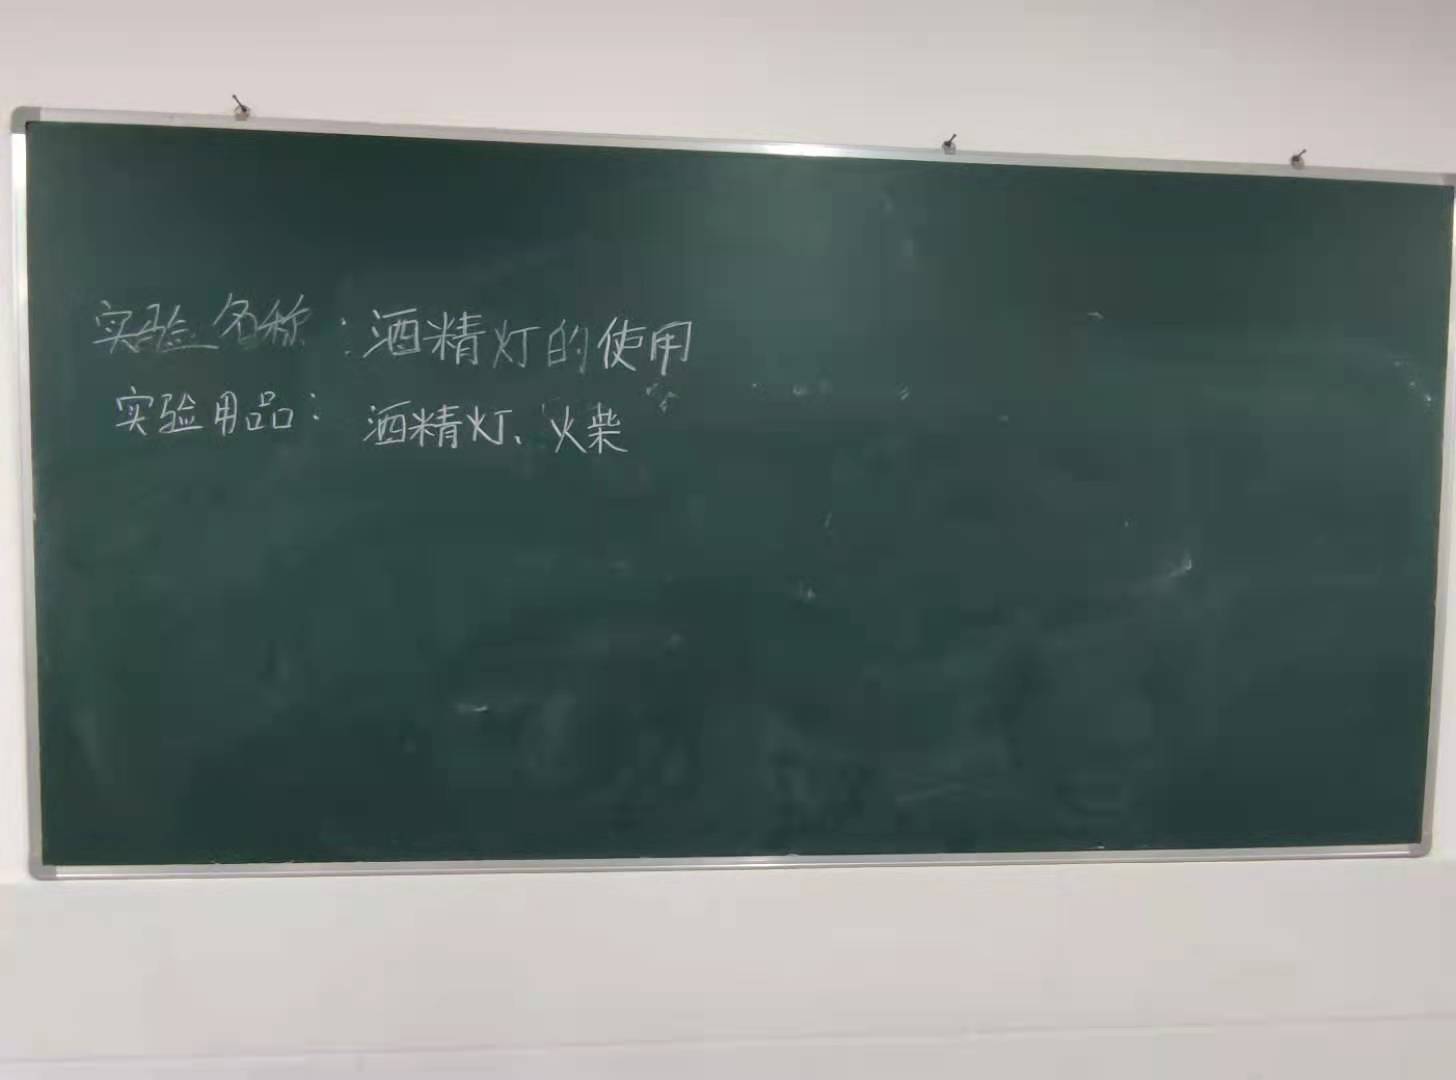 实验名称：酒精灯的使用
实验用品：酒精灯、火柴